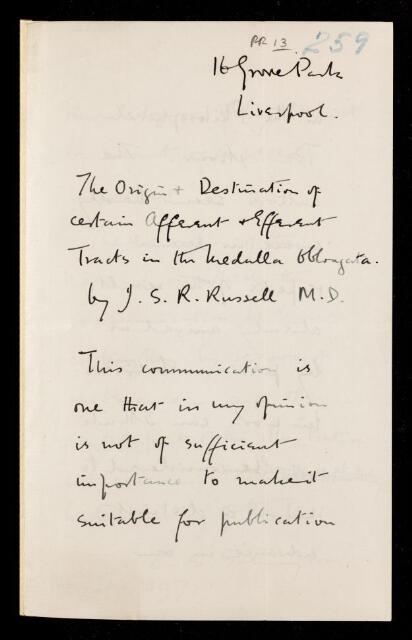 RR 13 259
16 Grove Park
Liverpool.
The Origin + Destination of
certain Afferent + Efferent
Tracts in the Medulla Oblongata.
by J. S. R. Russell M.D.
This communication is
one that in my opinion
is not of sufficient
importance to make it
suitable for publication